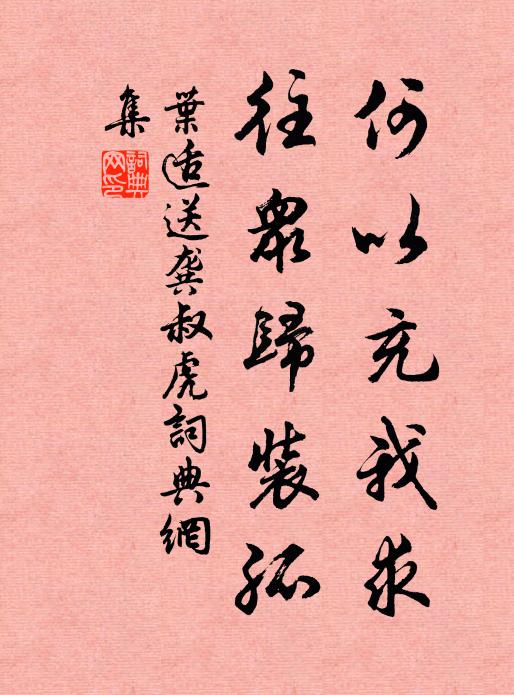 何以充我求
往眾歸裝孤
葉适送龔叔虎詞典網
集
詞典網印